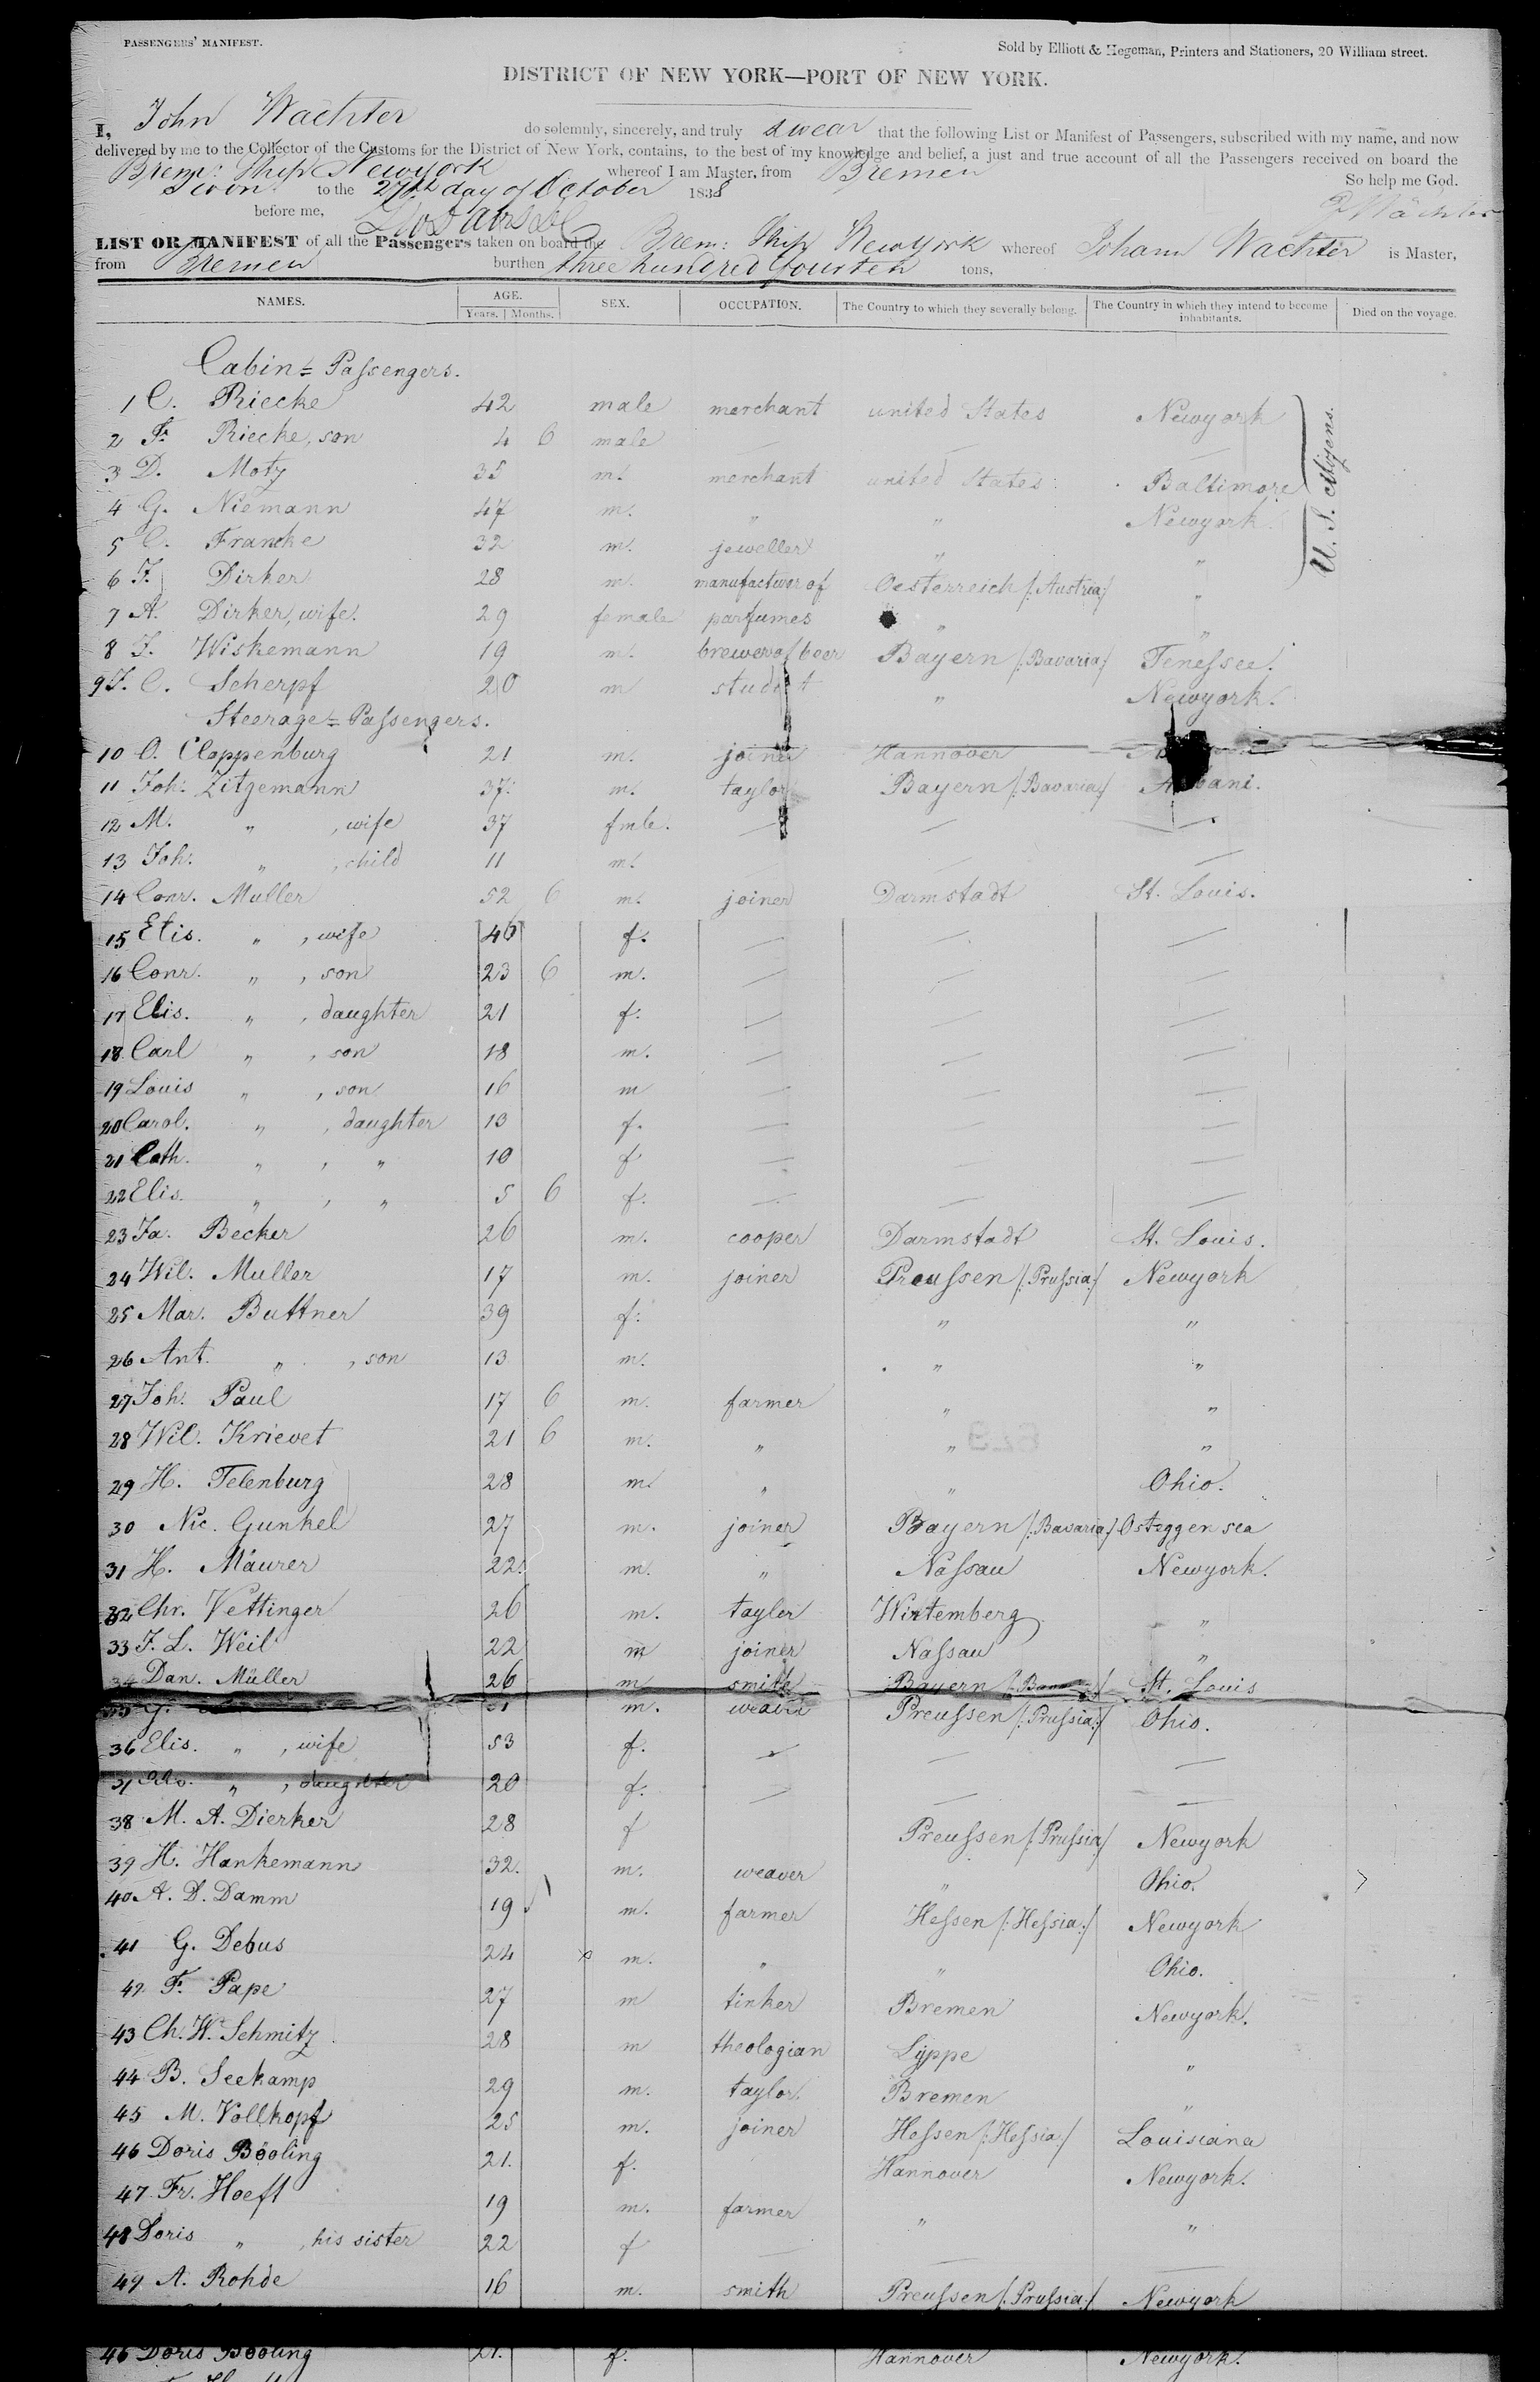 PASSENGERS' MANIFEST.
Sold by Elliott & Hegeman, Printers and Stationers, 20 William street.
DISTRICT OF NEW YORK—PORT OF NEW YORK.
I, John Wachter do solemnly, sincerely, and truly swear that the following List or Manifest of Passengers, subscribed with my name, and now
delivered by me to the Collector of the Customs for the District of New York, contains, to the best of my knowledge and belief, a just and true account of all the Passengers received on board the
Brem: Ship Newyork whereof I am Master, from Bremen
to the 27th day of October 1838 So help me God.
before me, J Wächter
LIST OR MANIFEST of all the Passengers taken on board the Brem: Ship Newyork whereof Johann Wachter is Master,
from Bremen burthen three hundred fourteen tons,
NAMES. AGE. Years. Months. SEX. OCCUPATION. The Country to which they severally belong. The Country in which they intend to become inhabitants. Died on the voyage.
Cabin= Passengers.
1 C. Riecke 42 male merchant united States Newyork
2 F. Riecke, son 4 6 male — — —
3 D. Moty 35 m. merchant united States Baltimore
4 G. Niemann 47 m. " " Newyork
5 C. Francke 32 m. jeweller " "
U. S. citizens.
6 F. Dirker 28 m. manufacturer of Oesterreich /: Austria :/ "
7 A. Dirker, wife. 29 female parfumes " "
8 F. Wiskemann 19 m. brewer of beer Bayern /: Bavaria :/ Tenessee.
9 F. C. Scherpf 20 m student " Newyork.
Steerage= Passengers.
10 O. Cloppenburg 21 m. joiner Hannover
11 Joh. Zitgemann 37 m. taylor Bayern /: Bavaria :/ Albani.
12 M. " , wife 37 fmle. — — —
13 Joh. " , child 11 m. — —
14 Conr. Muller 52 6 m. joiner Darmstadt St. Louis.
15 Elis. " , wife 46 f. — — —
16 Conr. " , son 23 6 m. — — —
17 Elis. " , daughter 21 f. — — —
18 Carl " , son 18 m. — — —
19 Louis " , son 16 m — — —
20 Carol. " , daughter 13 f. — — —
21 Cath. " , " 10 f — — —
22 Elis. " , " 5 6 f. — — —
23 Ja. Becker 26 m. cooper Darmstadt St. Louis.
24 Wil. Muller 17 m. joiner Preussen /: Prussia :/ Newyork
25 Mar. Buttner 39 f. " "
26 Ant. " , son 13 m. " "
27 Joh. Paul 17 6 m. farmer " "
28 Wil. Krievet 21 6 m. " " "
29 H. Telenburg 28 m. " " Ohio.
30 Nic. Gunkel 27 m. joiner Bayern /: Bavaria :/ Osteggensea
31 H. Maurer 22. m. " Nassau Newyork.
32 Chr. Vettinger 26 m. tayler Wirtemberg "
33 F. L. Weil 22 m joiner Nassau "
34 Dan. Müller 26 m smith Bayern /: Bavaria :/ St. Louis
35 G. m. weaver Preussen /: Prussia :/ Ohio.
36 Elis. " , wife 53 f. — — —
37 " , daughter 20 f. — — —
38 M. A. Dierker 28 f Preussen /: Prussia :/ Newyork
39 H. Hankemann 32. m. weaver " Ohio.
40 A. D. Damm 19 m. farmer Hessen /: Hessia :/ Newyork
41 G. Debus 24 m. " " Ohio.
42 F. Pape 27 m tinker Bremen Newyork.
43 Ch. W. Schmitz 28 m theologian Lippe "
44 B. Seekamp 29 m. taylor. Bremen "
45 M. Vollkopf 25 m. joiner Hessen /: Hessia :/ Louisiana
46 Doris Booling 21. f. Hannover Newyork.
47 Fr. Hoeft 19 m. farmer " "
48 Doris " , his sister 22 f — — —
49 A. Rohde 16 m. smith Preussen /: Prussia :/ Newyork
46 Doris Booling 21. f. Hannover Newyork.